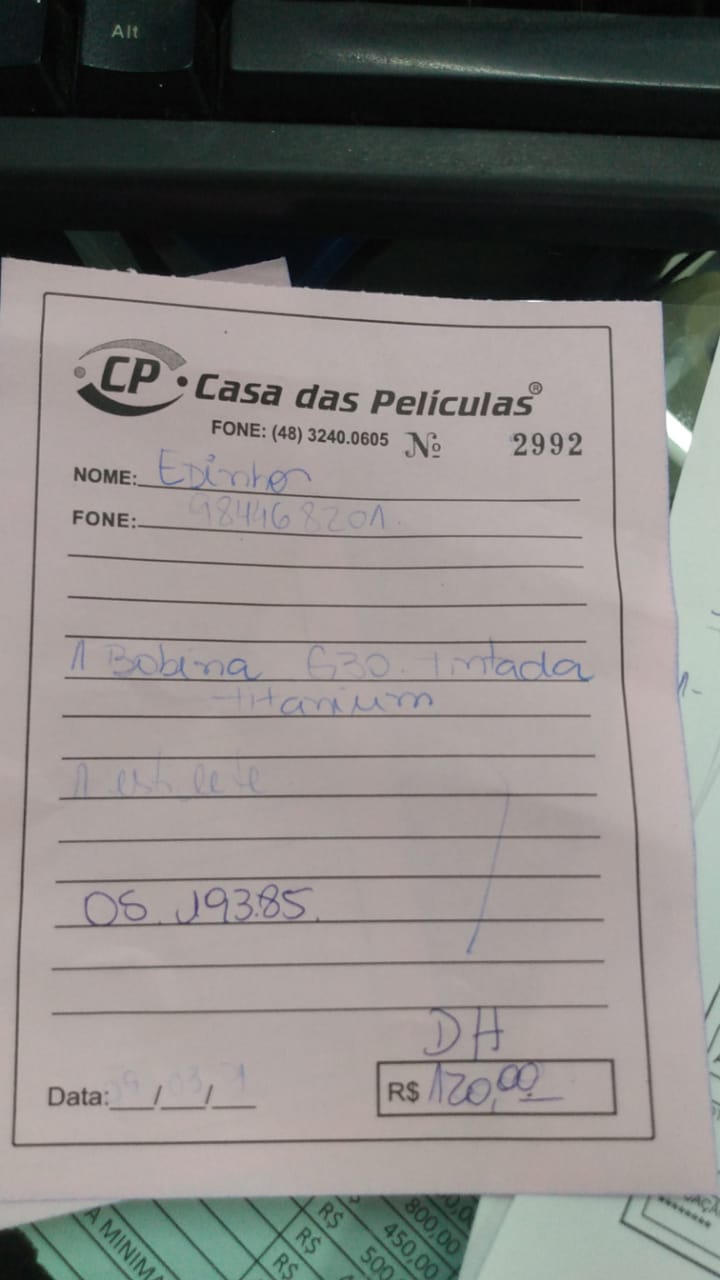 Alt
CP
Casa das Películas®
FONE: (48) 3240.0605 Nº 2992
NOME:
FONE: 984468201.
1 Bobina G30. tintada
titanium
1 estilete
OS. 19385.
DH
Data: 09/03/ R$ 120,00
A MINIMA
R$ 800,00
R$ 450,00
R$ 500